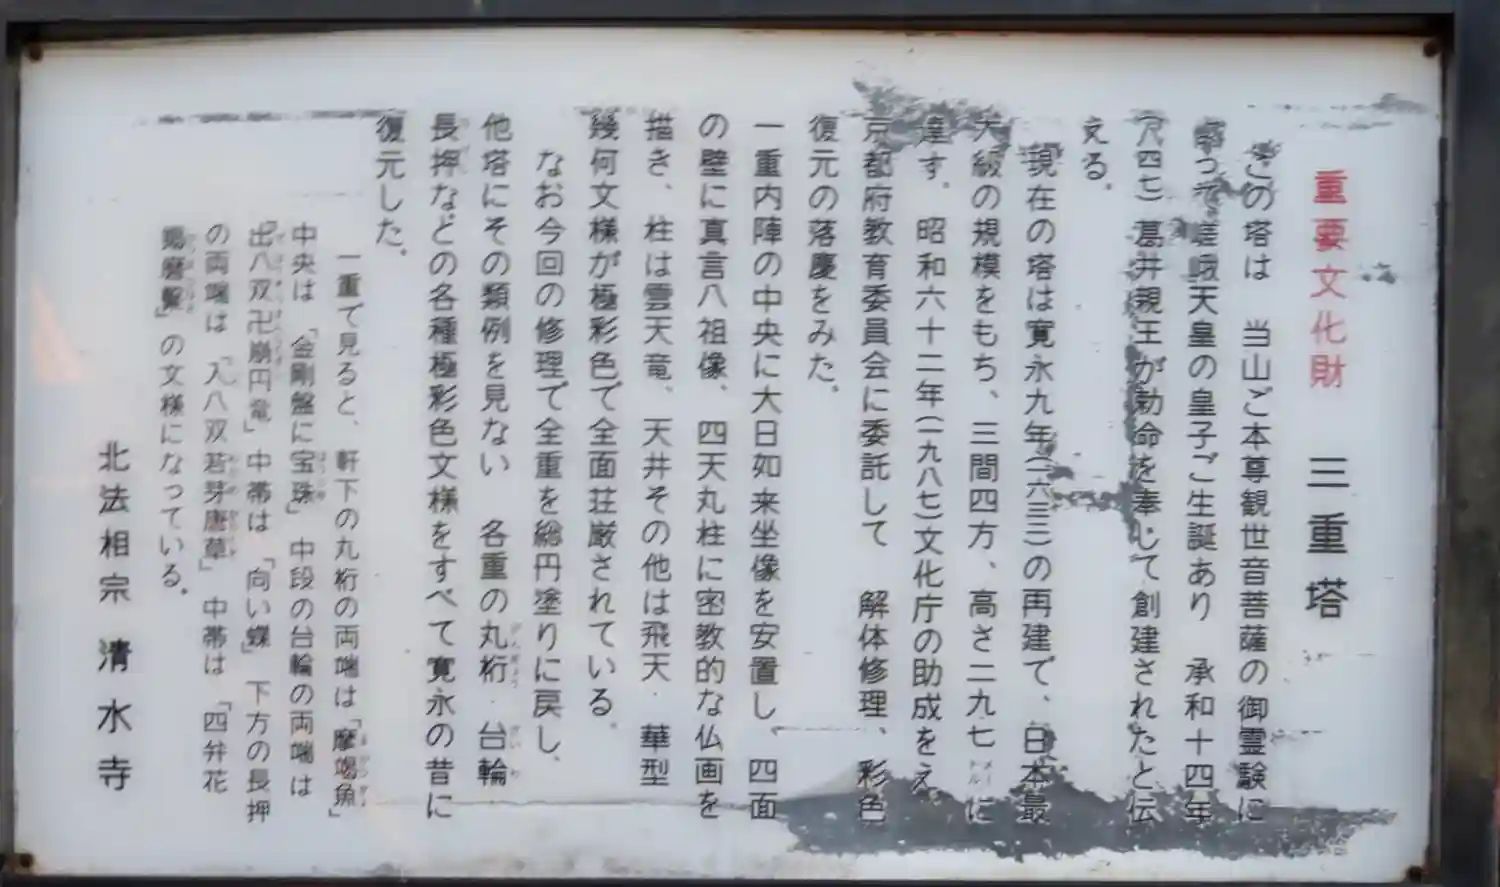 重要文化財　三重塔
この塔は　当山ご本尊観世音菩薩の御霊験に
って嵯峨天皇の皇子ご生誕あり　承和十四年
八四七）葛井親王が勅命を奉じて創建されたと伝
える。
現在の塔は寛永九年（一六三三）の再建で、日本最
大級の規模をもち、三間四方、高さ二九七メートルに
達す。昭和六十二年（一九八七）文化庁の助成をえ、
京都府教育委員会に委託して　解体修理、彩色
復元の落慶をみた。
一重内陣の中央に大日如来坐像を安置し、四面
の壁に真言八祖像、四天丸柱に密教的な仏画を
描き、柱は雲天竜、天井その他は飛天・華型
幾何文様が極彩色で全面荘厳されている。
なお今回の修理で全重を総円塗りに戻し、
他塔にその類例を見ない　各重の丸桁・台輪
長押などの各種極彩色文様をすべて寛永の昔に
復元した。
一重で見ると、軒下の丸桁の両端は「摩竭魚」
中央は「金剛盤に宝珠」中段の台輪の両端は
「出八双卍崩円竜」中帯は「向い蝶」下方の長押
の両端は「入八双若芽唐草」中帯は「四弁花
羯磨繋」の文様になっている。
北法相宗　清水寺